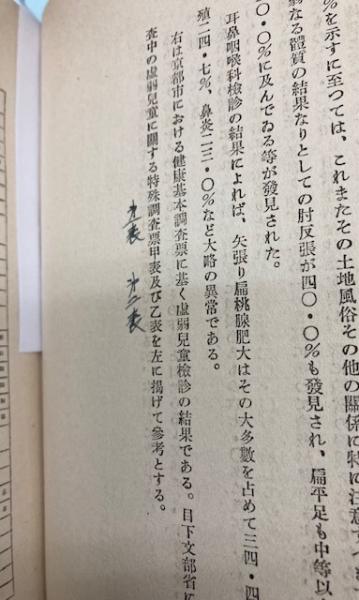 %を示すに至つては、これまたその土地風俗その他の關係に特に注意す
なる體質の結果なりとしての肘反張が四〇・〇%も發見され、扁平足も中等以
〇・〇%に及んでゐる等が發見された。
耳鼻咽喉科檢診の結果によれば、矢張り扁桃腺肥大はその大多數を占めて三四・四
殖二四・七%、鼻炎二三・〇%など大略の異常である。
右は京都市における健康基本調査票に基く虛弱兒童檢診の結果である。目下文部省に
査中の虛弱兒童に關する特殊調査票甲表及び乙表を左に揭げて參考とする。
第一表 第二表